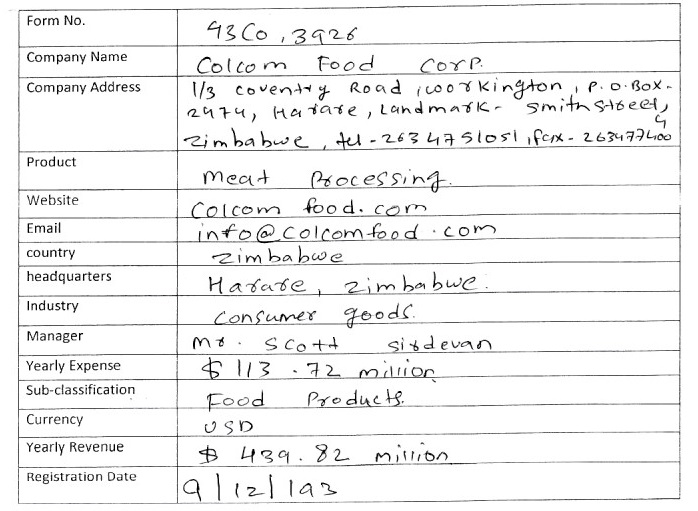 Form No. 93Co, 3926
Company Name Colcom Food Corp.
Company Address 1/3 coventry Road, workington, P.O.Box-
2474, Harare, Landmark- smith street,
Zimbabwe, tel-2634751051, fax-263477400
4
Product Meat Processing.
Website Colcom food.com
Email info@colcomfood.com
country Zimbabwe
headquarters Harare, Zimbabwe.
Industry consumer goods.
Manager Mr. Scott sirdevan
Yearly Expense $ 113.72 million
Sub-classification Food Products.
Currency USD
Yearly Revenue $ 439.82 million
Registration Date 9/12/193